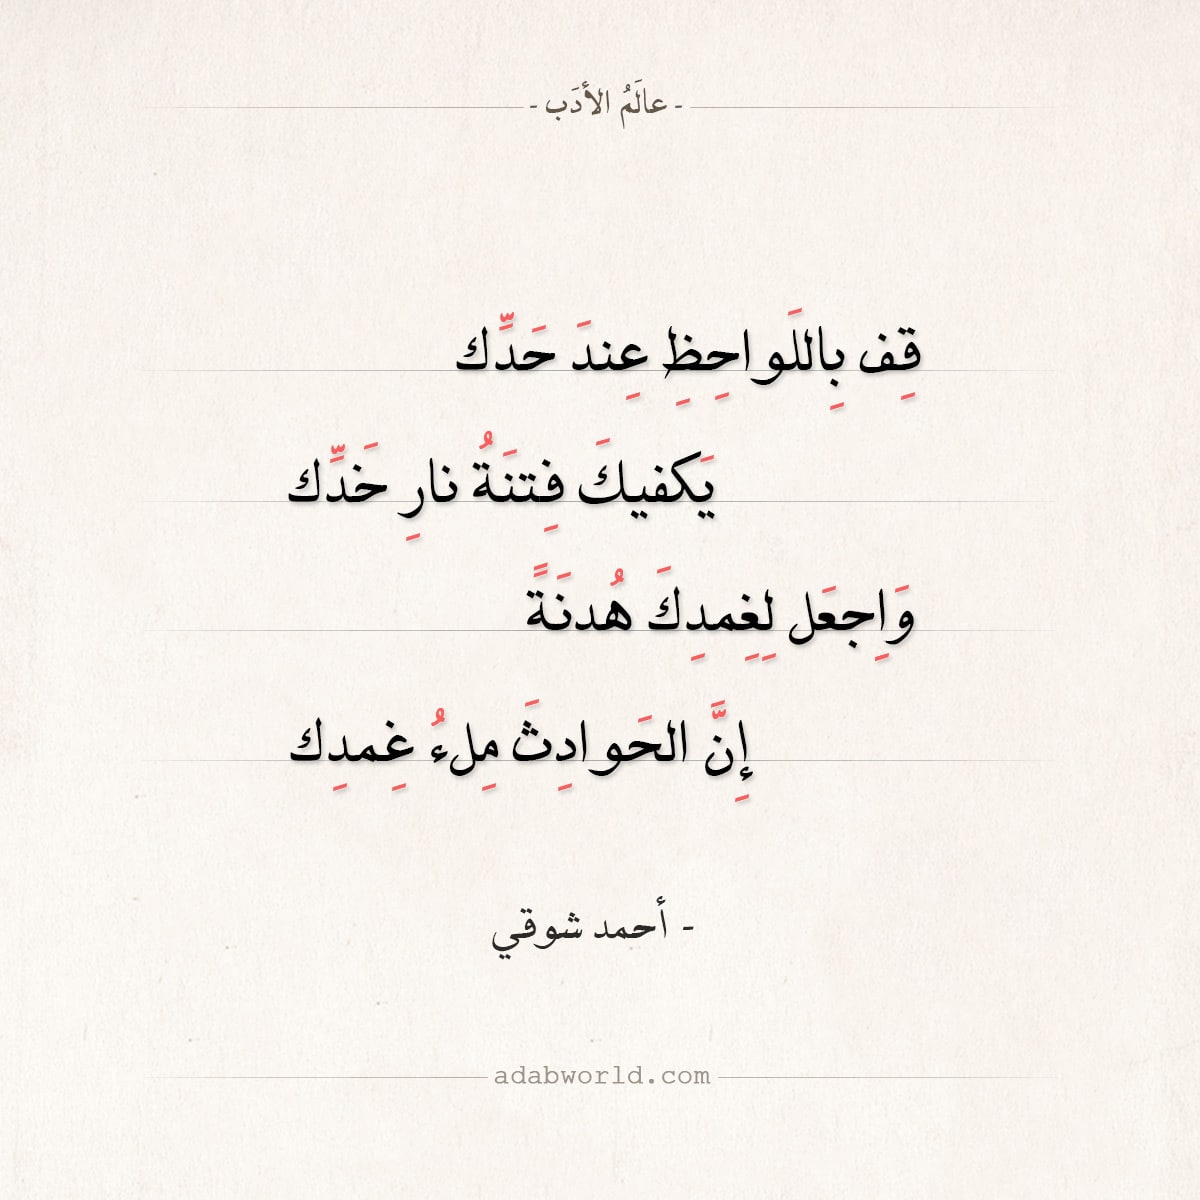 - عالَمُ الأدَب -
قِف بِاللَواحِظِ عِندَ حَدِّك
يَكفيكَ فِتنَةُ نارِ خَدِّك
وَاِجعَل لِغِمدِكَ هُدنَةً
إِنَّ الحَوادِثَ مِلءُ غِمدِك
- أحمد شوقي
adabworld.com